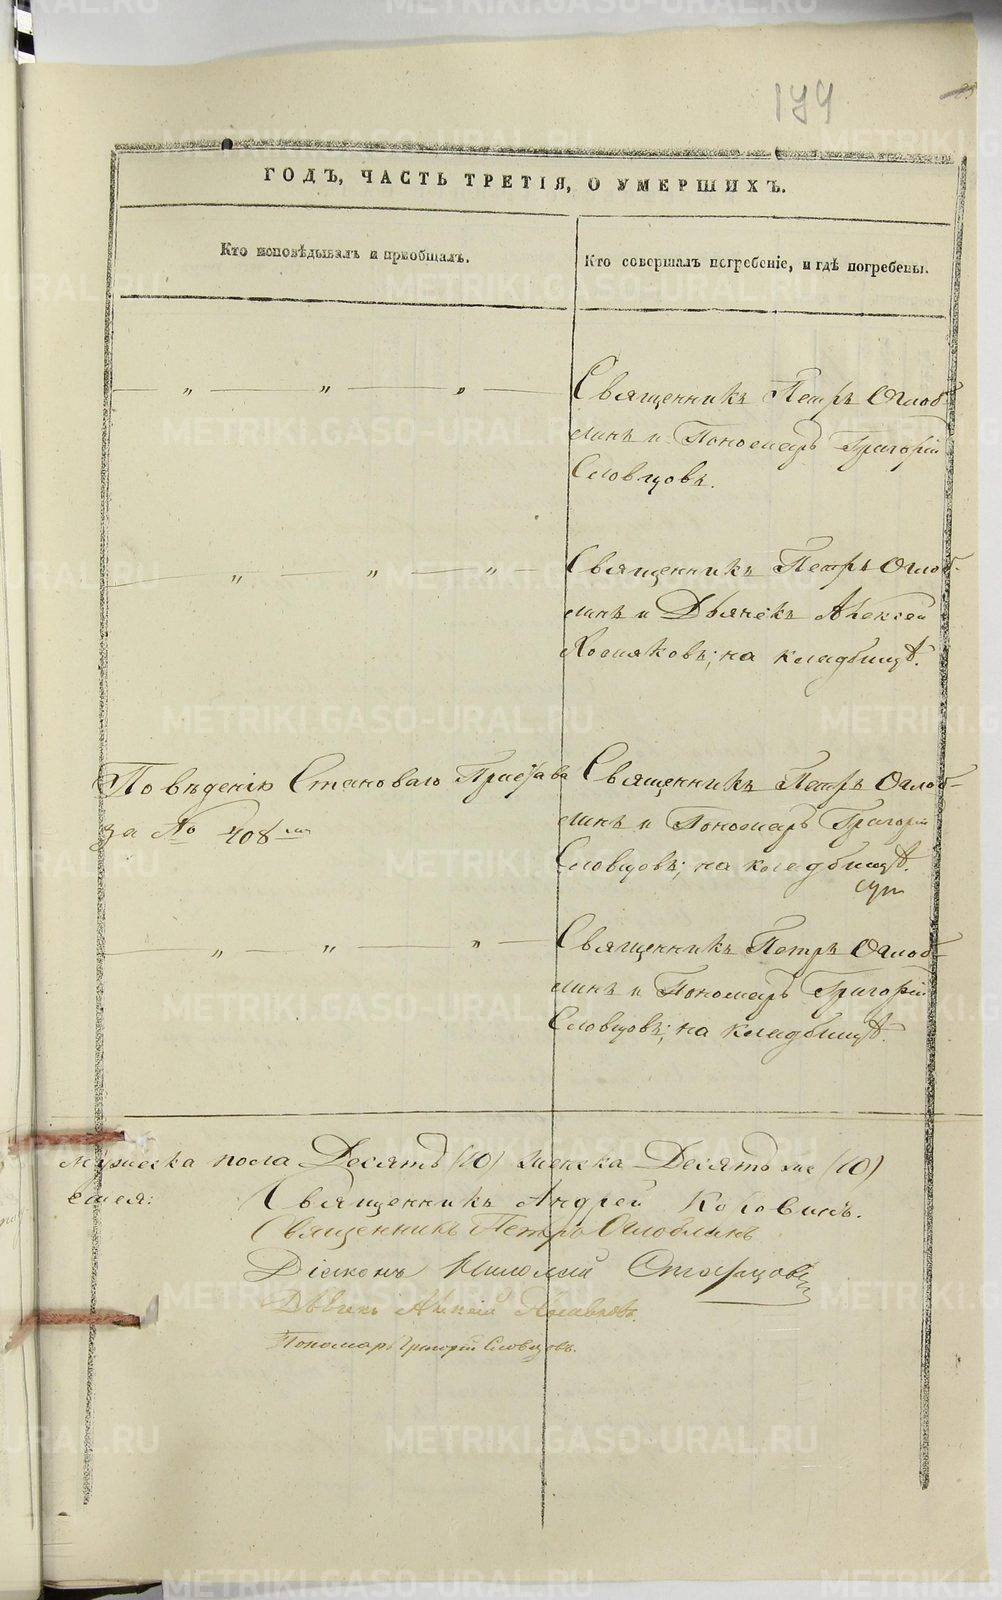 179
ГОДЪ, ЧАСТЬ ТРЕТІЯ, О УМЕРШИХЪ.
Кто исповѣдывалъ и пріобщалъ.
Кто совершалъ погребеніе, и гдѣ погребены.
— „ — „ — „ —
Священникъ Петръ Оглоб
линъ и Пономарь Григорій
Словцовъ.
— „ — „ — „ —
Священникъ Петръ Оглоб-
линъ и Дьячекъ Алексей
на кладбищѣ.
По вѣденію Становаго Пристава
за № 408
Священникъ Петръ Оглоб-
линъ и Пономарь Григорій
Словцовъ; на кладбищѣ.
— „ — „ — „ —
Священникъ Петръ Оглоб-
линъ и Пономарь Григорій
Словцовъ; на кладбищѣ.
Мужеска пола Десять (10) женска Десять же (10)
Священникъ Андрей Коровинъ.
Священникъ Петръ Оглоблинъ
Діаконъ
Пономарь Григорій Словцовъ.
METRIKI.GASO-URAL.RU